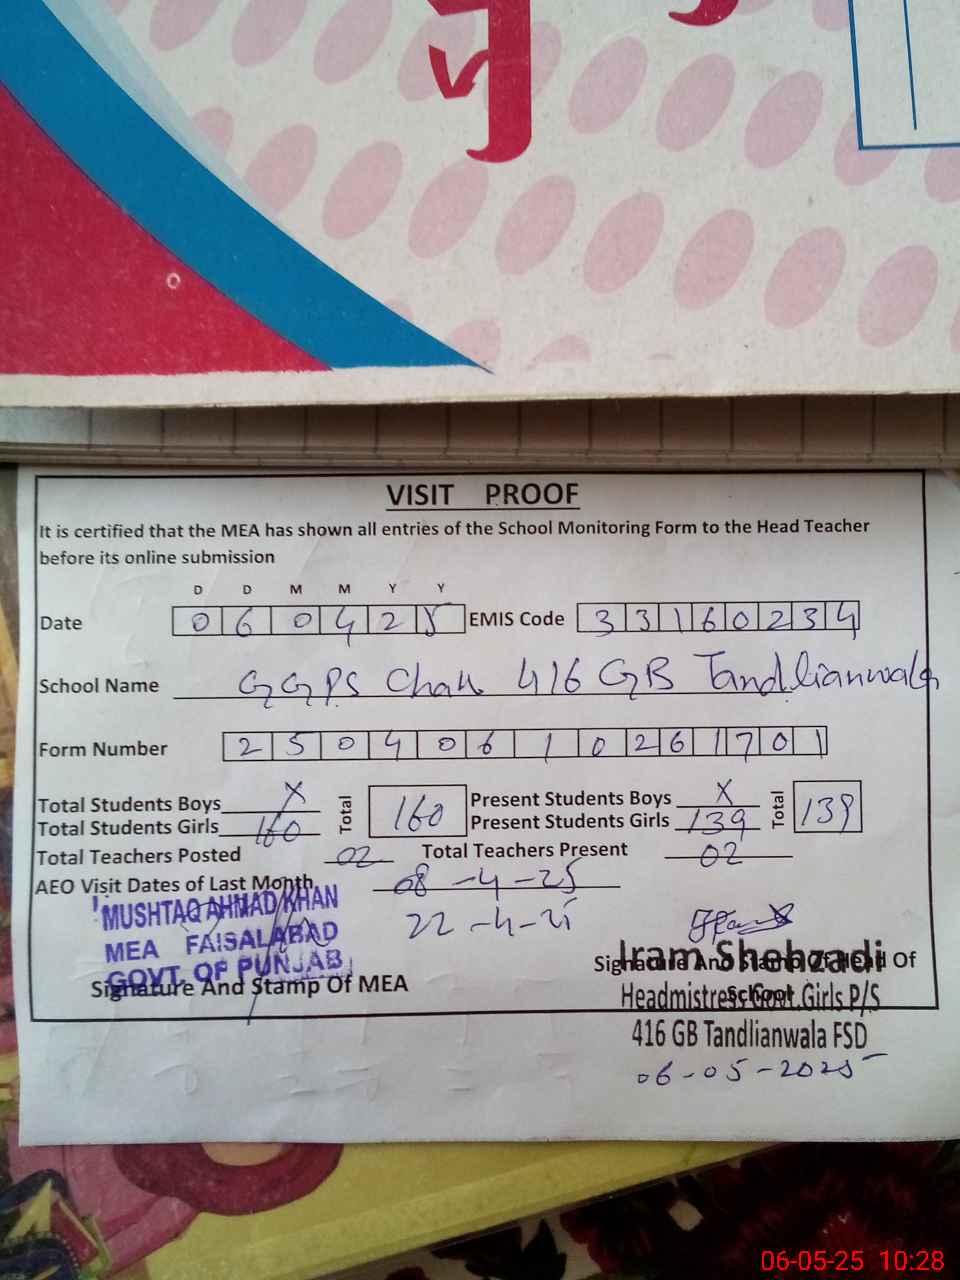 VISIT PROOF
It is certified that the MEA has shown all entries of the School Monitoring Form to the Head Teacher
before its online submission
D D M M Y Y
Date 0 6 0 4 2 5 EMIS Code 3 3 1 6 0 2 3 4
School Name GGPS Chak 416 GB Tandlianwala
Form Number 2 5 0 4 0 6 1 0 2 6 1 7 0 1
Total Students Boys X Total 160 Present Students Boys X Total 139
Total Students Girls 160 Present Students Girls 139
Total Teachers Posted 02 Total Teachers Present 02
AEO Visit Dates of Last Month 08-4-25
22-4-25
MUSHTAQ AHMAD KHAN
MEA FAISALABAD
GOVT. OF PUNJAB
Signature And Stamp Of MEA
Signature And Stamp Of Head Of
School
Iram Shehzadi
Headmistress Govt. Girls P/S
416 GB Tandlianwala FSD
06-05-2025
06-05-25 10:28